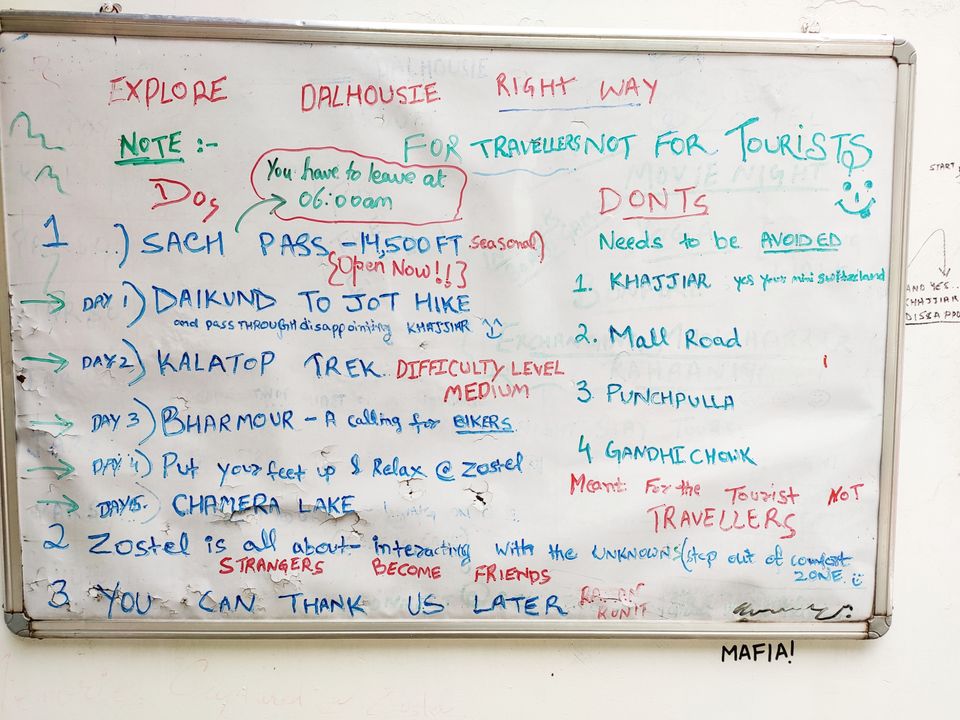 EXPLORE DALHOUSIE RIGHT WAY
NOTE :- FOR TRAVELLERS NOT FOR TOURISTS
You have to leave at
06:00am
Dos
DONTS
1 ) SACH PASS - 14,500FT seasonal)
{Open Now!!}
Needs to be AVOIDED
DAY 1) DAIKUND TO JOT HIKE
and pass THROUGH disappointing KHAJJIAR
1. KHAJJIAR yes your mini switzeland
DAY 2) KALATOP TREK DIFFICULTY LEVEL
MEDIUM
2. Mall Road
DAY 3) BHARMOUR - A calling for BIKERS
3 PUNCHPULLA
DAY 4) Put your feet up & Relax @ Zostel
4 GANDHI CHOWK
DAY 5. CHAMERA LAKE
Meant For the Tourist NOT
TRAVELLERS
2 Zostel is all about- interacting with the UNKNOWNS (step out of comfort
ZONE.
STRANGERS BECOME FRIENDS
3 YOU CAN THANK US LATER
MAFIA!
START
AND YES..